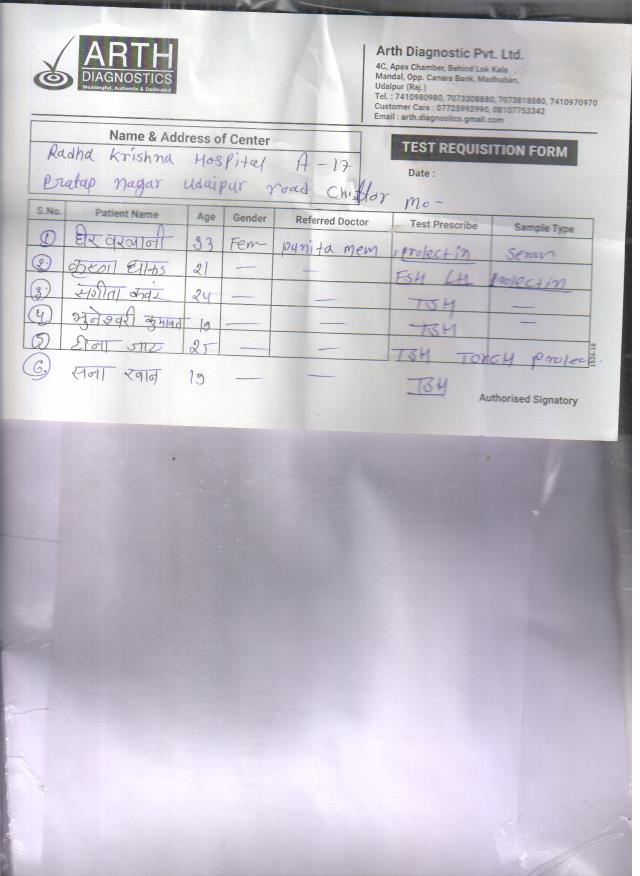 ARTH
DIAGNOSTICS
Meaningful, Authentic & Dedicated
Arth Diagnostic Pvt. Ltd.
4C, Apex Chamber, Behind Lok Kala
Mandal, Opp. Canara Bank, Madhuban,
Udaipur (Raj.)
Tel. : 7410980980, 7073308880, 7073818880, 7410970970
Customer Care : 07725992990, 08107753342
Email : arth.diagnositcs.gmail.com
Name & Address of Center
TEST REQUISITION FORM
Radha Krishna Hospital A - 17
Date :
Pratap nagar udaipur road Chittor mo -
S.No. Patient Name Age Gender Referred Doctor Test Prescribe Sample Type
1 33 Fem punita mem prolectin Seram
2 कृष्णा धाकड 21 — — FSH LH prolectin
3 संगीता कवंर 24 — — TSH —
4 भुनेश्वरी कुमावत 19 — — TSH —
5 टीना जाट 25 — — TSH TORCH Prolec
6. सना खान 19 — — TSH
Authorised Signatory